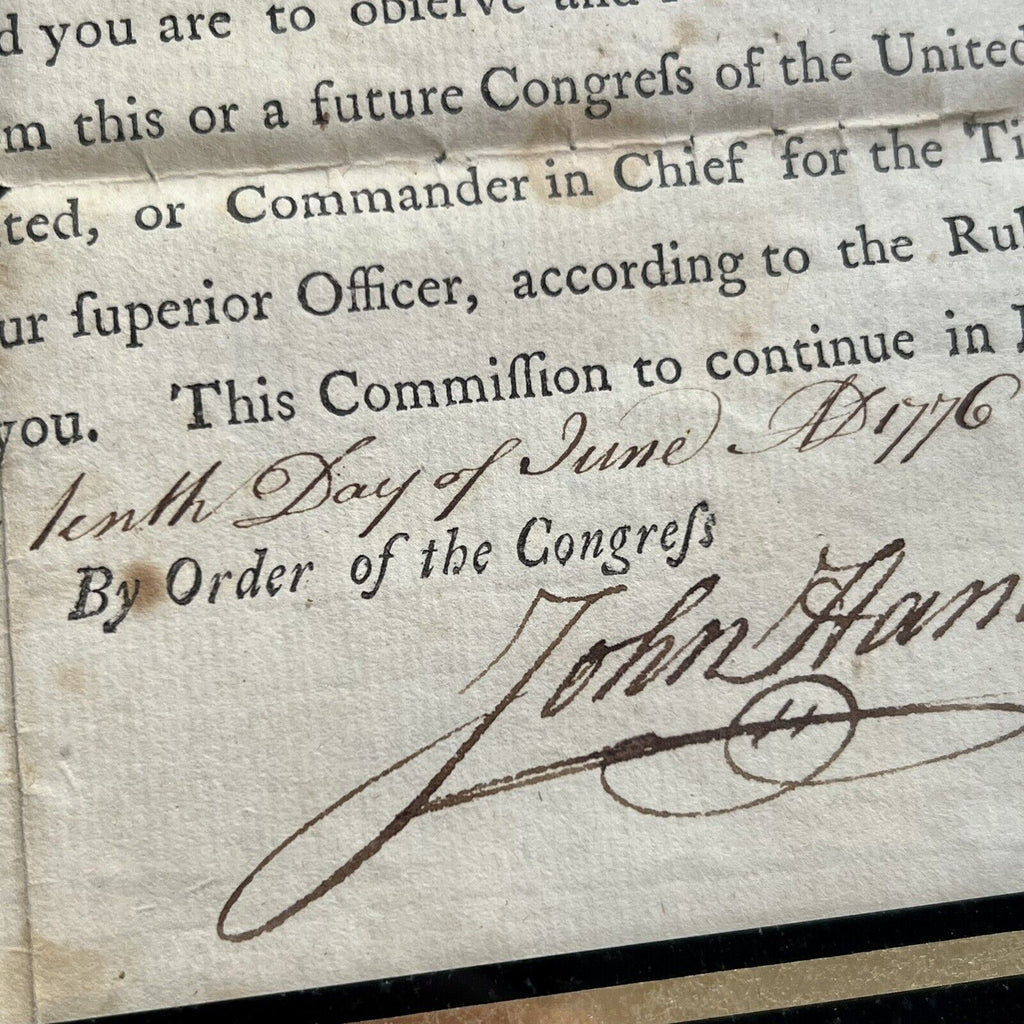 you are to obſerve and
this or a future Congreſs of the United
or Commander in Chief for the
ſuperior Officer, according to the
you. This Commiſſion to continue in
tenth Day of June AD 1776
By Order of the Congreſs
John Han